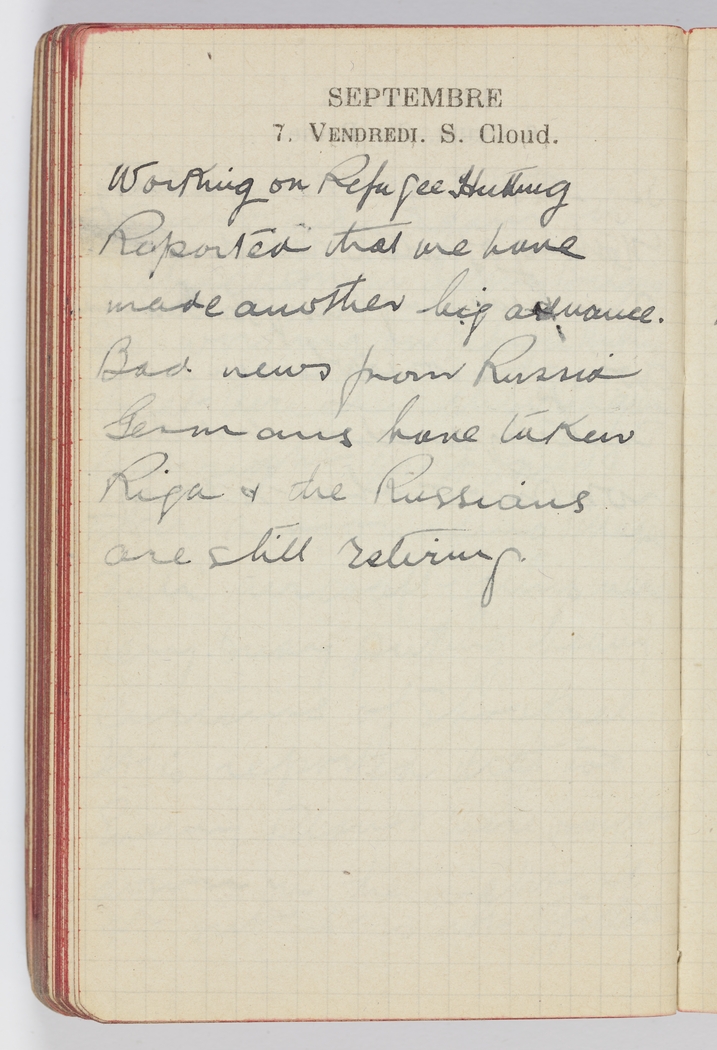 SEPTEMBRE
7. VENDREDI. S. Cloud.
Working on Refugee Hutting
Reported that we have
made another big advance.
Bad news from Russia
Germans have taken
Riga & the Russians
are still retiring.